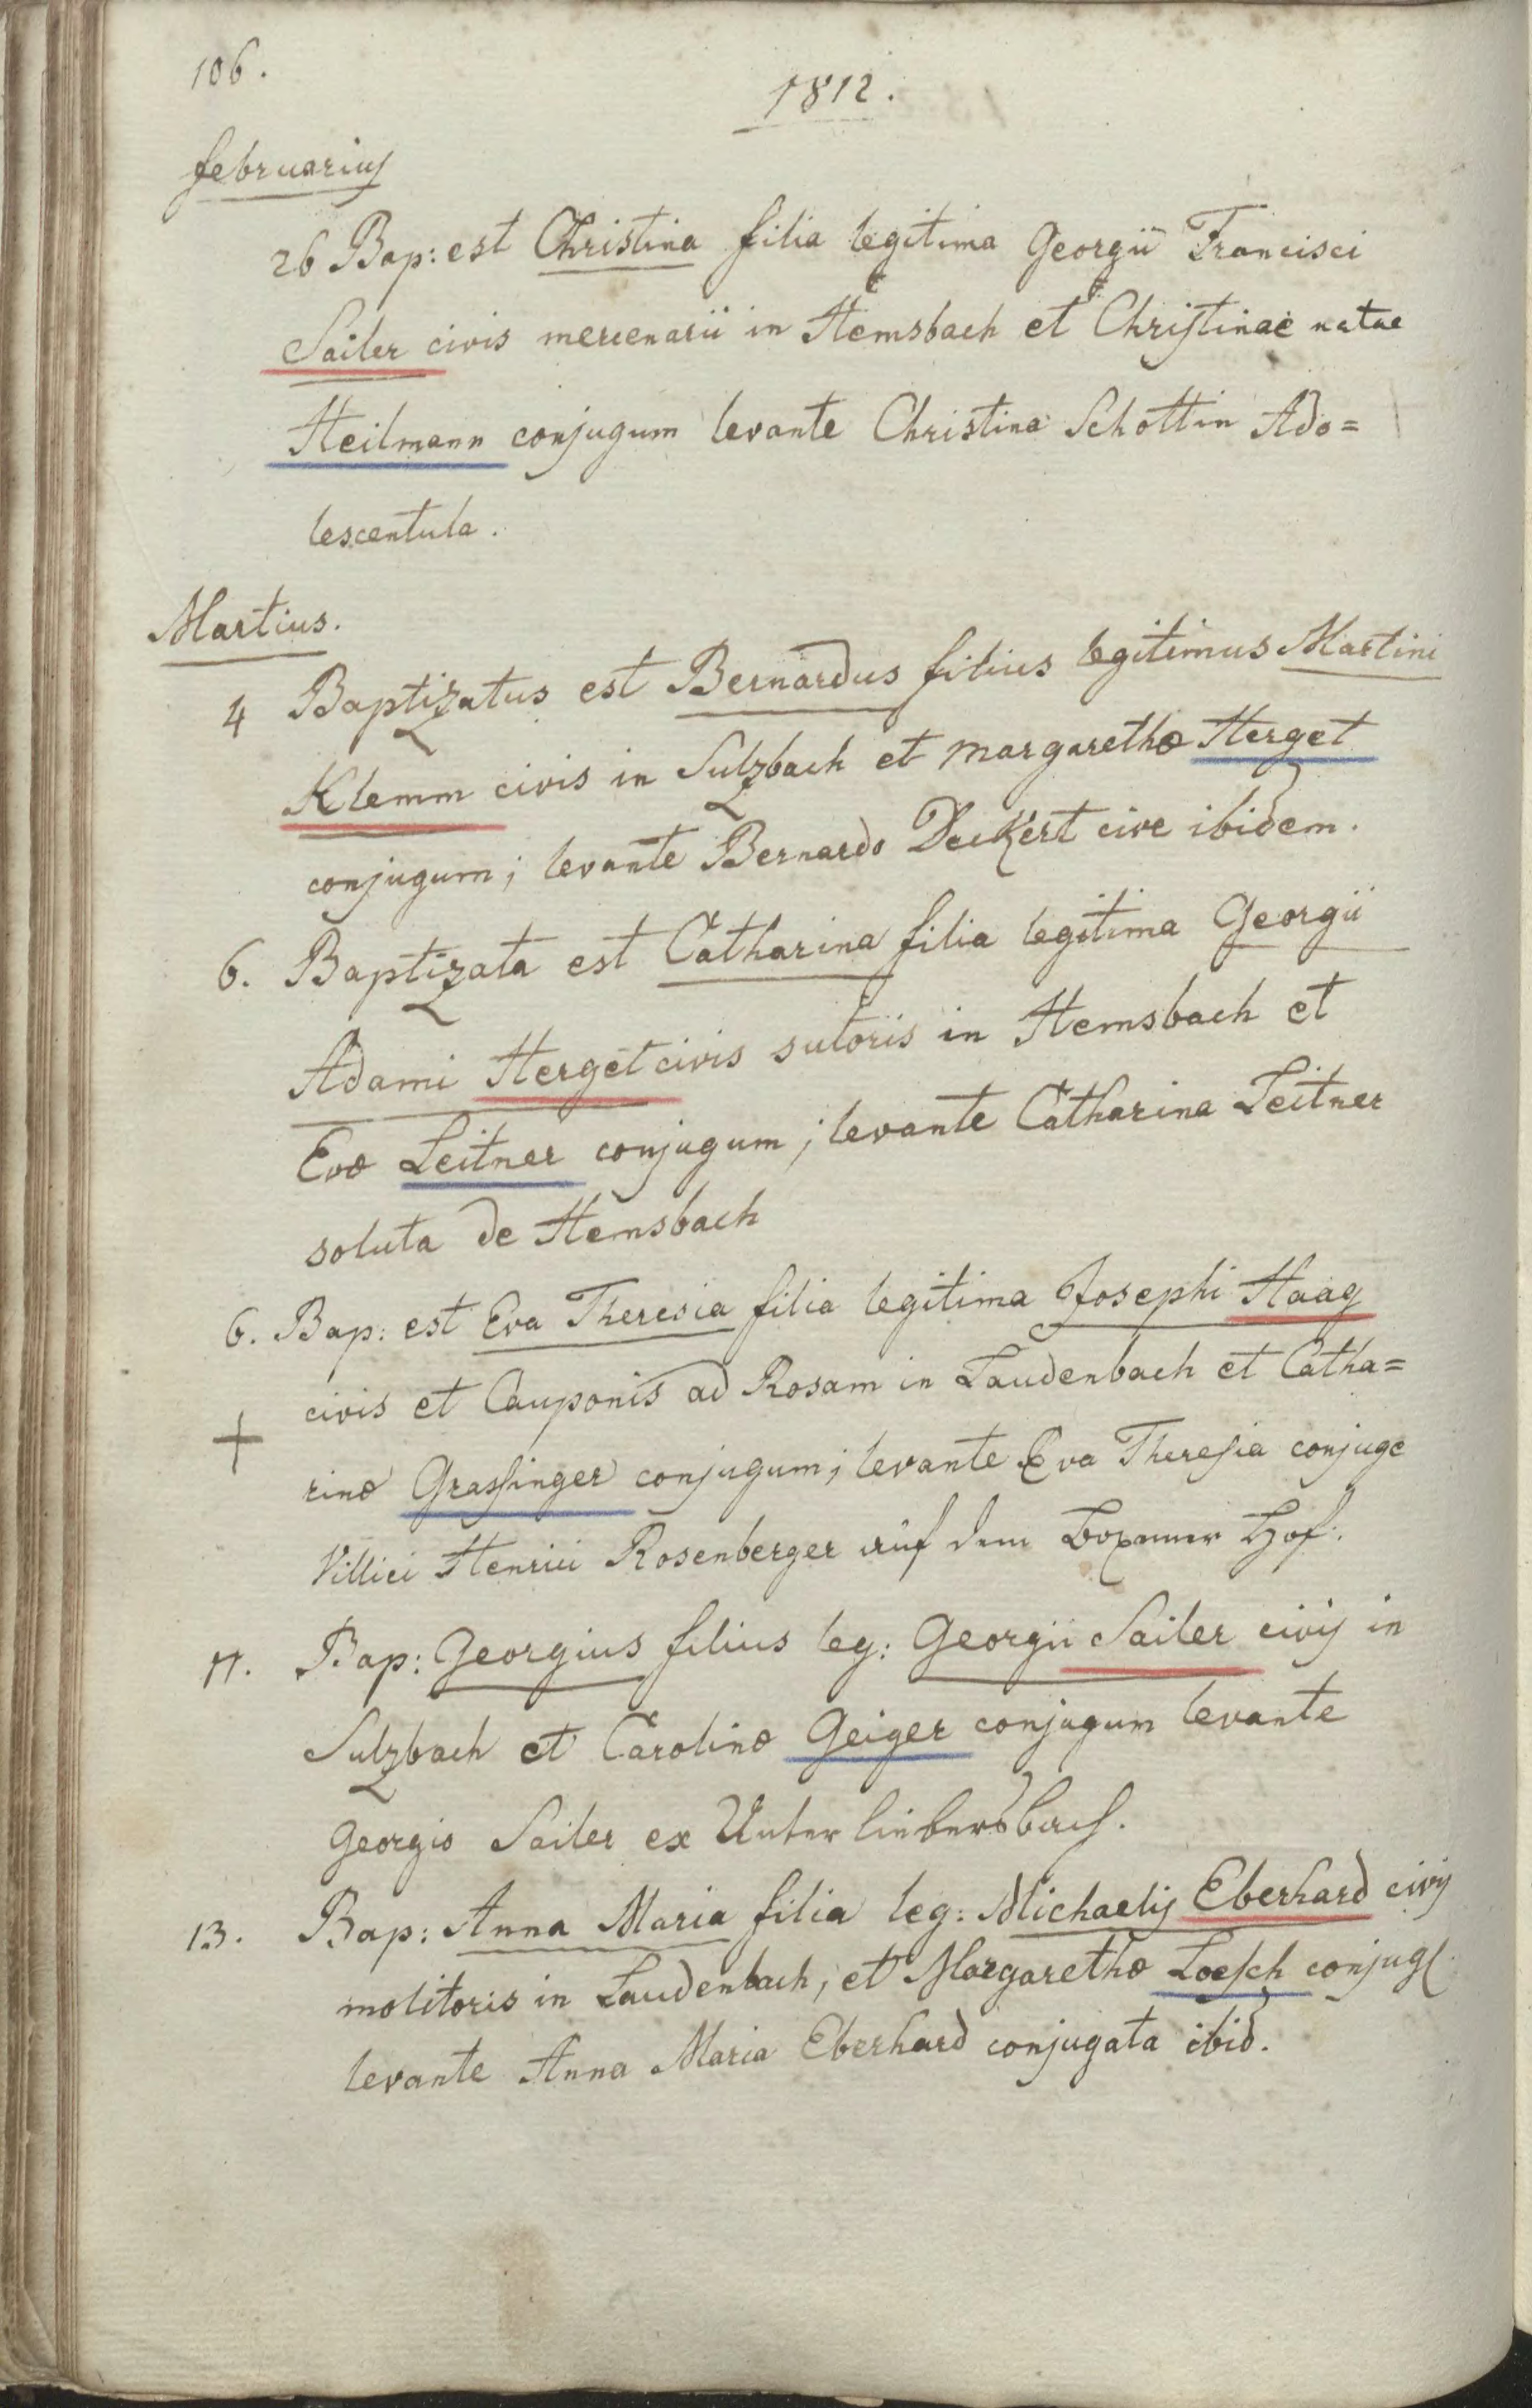 106.
1812.
februarius
26 Bap: est Christina filia legitima Georgii Francisci
Sailer civis mercenarii in Hemsbach et Christinae natae
Heilmann conjugum levante Christina Schottin Ado=
lescentula.
Martius.
4 Baptizatus est Bernardus filius legitimus Martini
Klemm civis in Sulzbach et Margarethæ Herget
conjugum; levante Bernardo Deckert cive ibidem.
6. Baptizata est Catharina filia legitima Georgii
Adami Herget civis sutoris in Hemsbach et
Evæ Leitner conjugum; levante Catharina Leitner
soluta de Hemsbach
6. Bap: est Eva Theresia filia legitima Josephi Haag
civis et Cauponis ad Rosam in Laudenbach et Catha=
rinæ Grassinger conjugum; levante Eva Theresia conjuge
Villici Henrici Rosenberger auf dem Hof.
11. Bap: Georgius filius leg: Georgii Sailer civis in
Sulzbach et Carolinæ Geiger conjugum levante
Georgio Sailer ex Unter liebersbach.
13. Bap: Anna Maria filia leg: Michaelis Eberhard civis
molitoris in Laudenbach, et Margarethæ Loesch conjug.
levante Anna Maria Eberhard conjugata ibid.